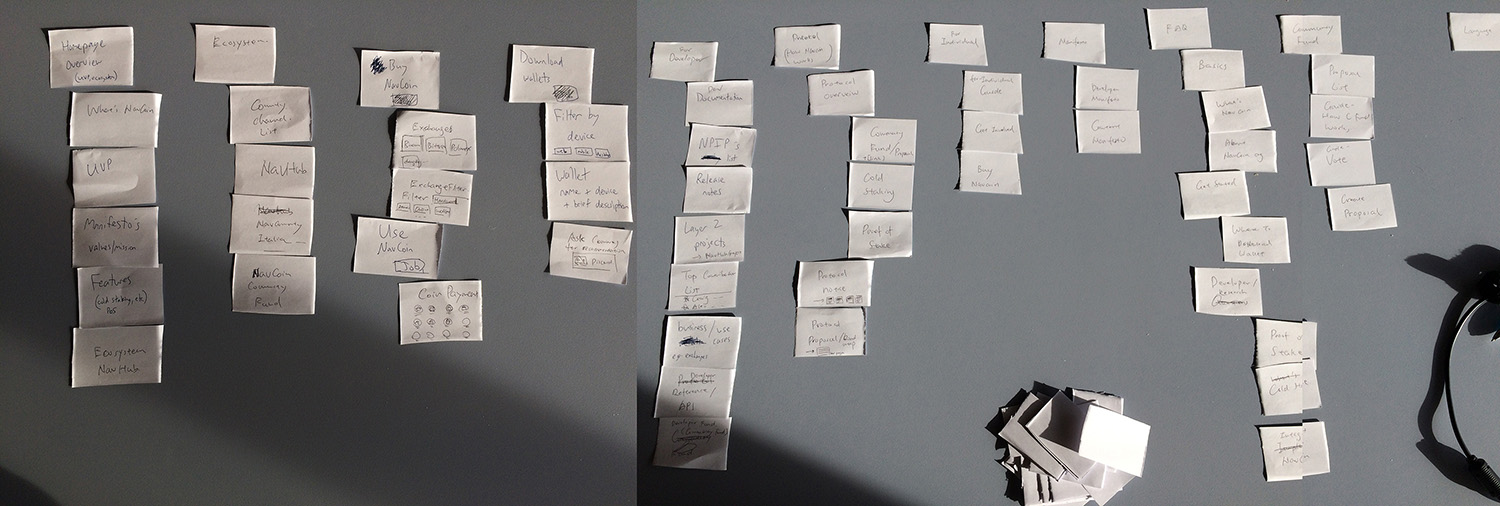 Homepage
Overview
What's NavCoin
UVP
Manifesto's
values/mission
Features
(cold staking, etc)
PoS
Ecosystem
NavHub
Ecosystem
Channel
List
NavHub
NavCommunity
Italica
NavCoin
Community
Fund
Buy
NavCoin
Exchanges
Exchange Filter
Filter
Use
NavCoin
Job
Coin Payment
Download
wallets
Filter by
device
Wallet
name + device
+ brief description
Ask Community
for recommendation
Discord
For
Developer
Dev
Documentation
NPIP's
List
Release
notes
Layer 2
projects
Top Contributor
List
business/use
cases
Developer
Reference/
API
Protocol
(How Navcoin
works)
Protocol
overview
Community
Fund/
Cold
Staking
Proof of
Stake
Protocol
Protocol
Proposal/
For
Individual
for Individual
Guide
Get Involved
Buy
Navcoin
Manifesto
Developer
Manifesto
Manifesto
FAQ
Basics
What's
Navcoin
NavCoin
Get Started
Where To
Download
Wallet
Developer/
Proof of
Stake
Cold
Community
Fund
Proposal
List
Guide-
How C Fund
Works
Guide-
Vote
Create
Proposal
Language